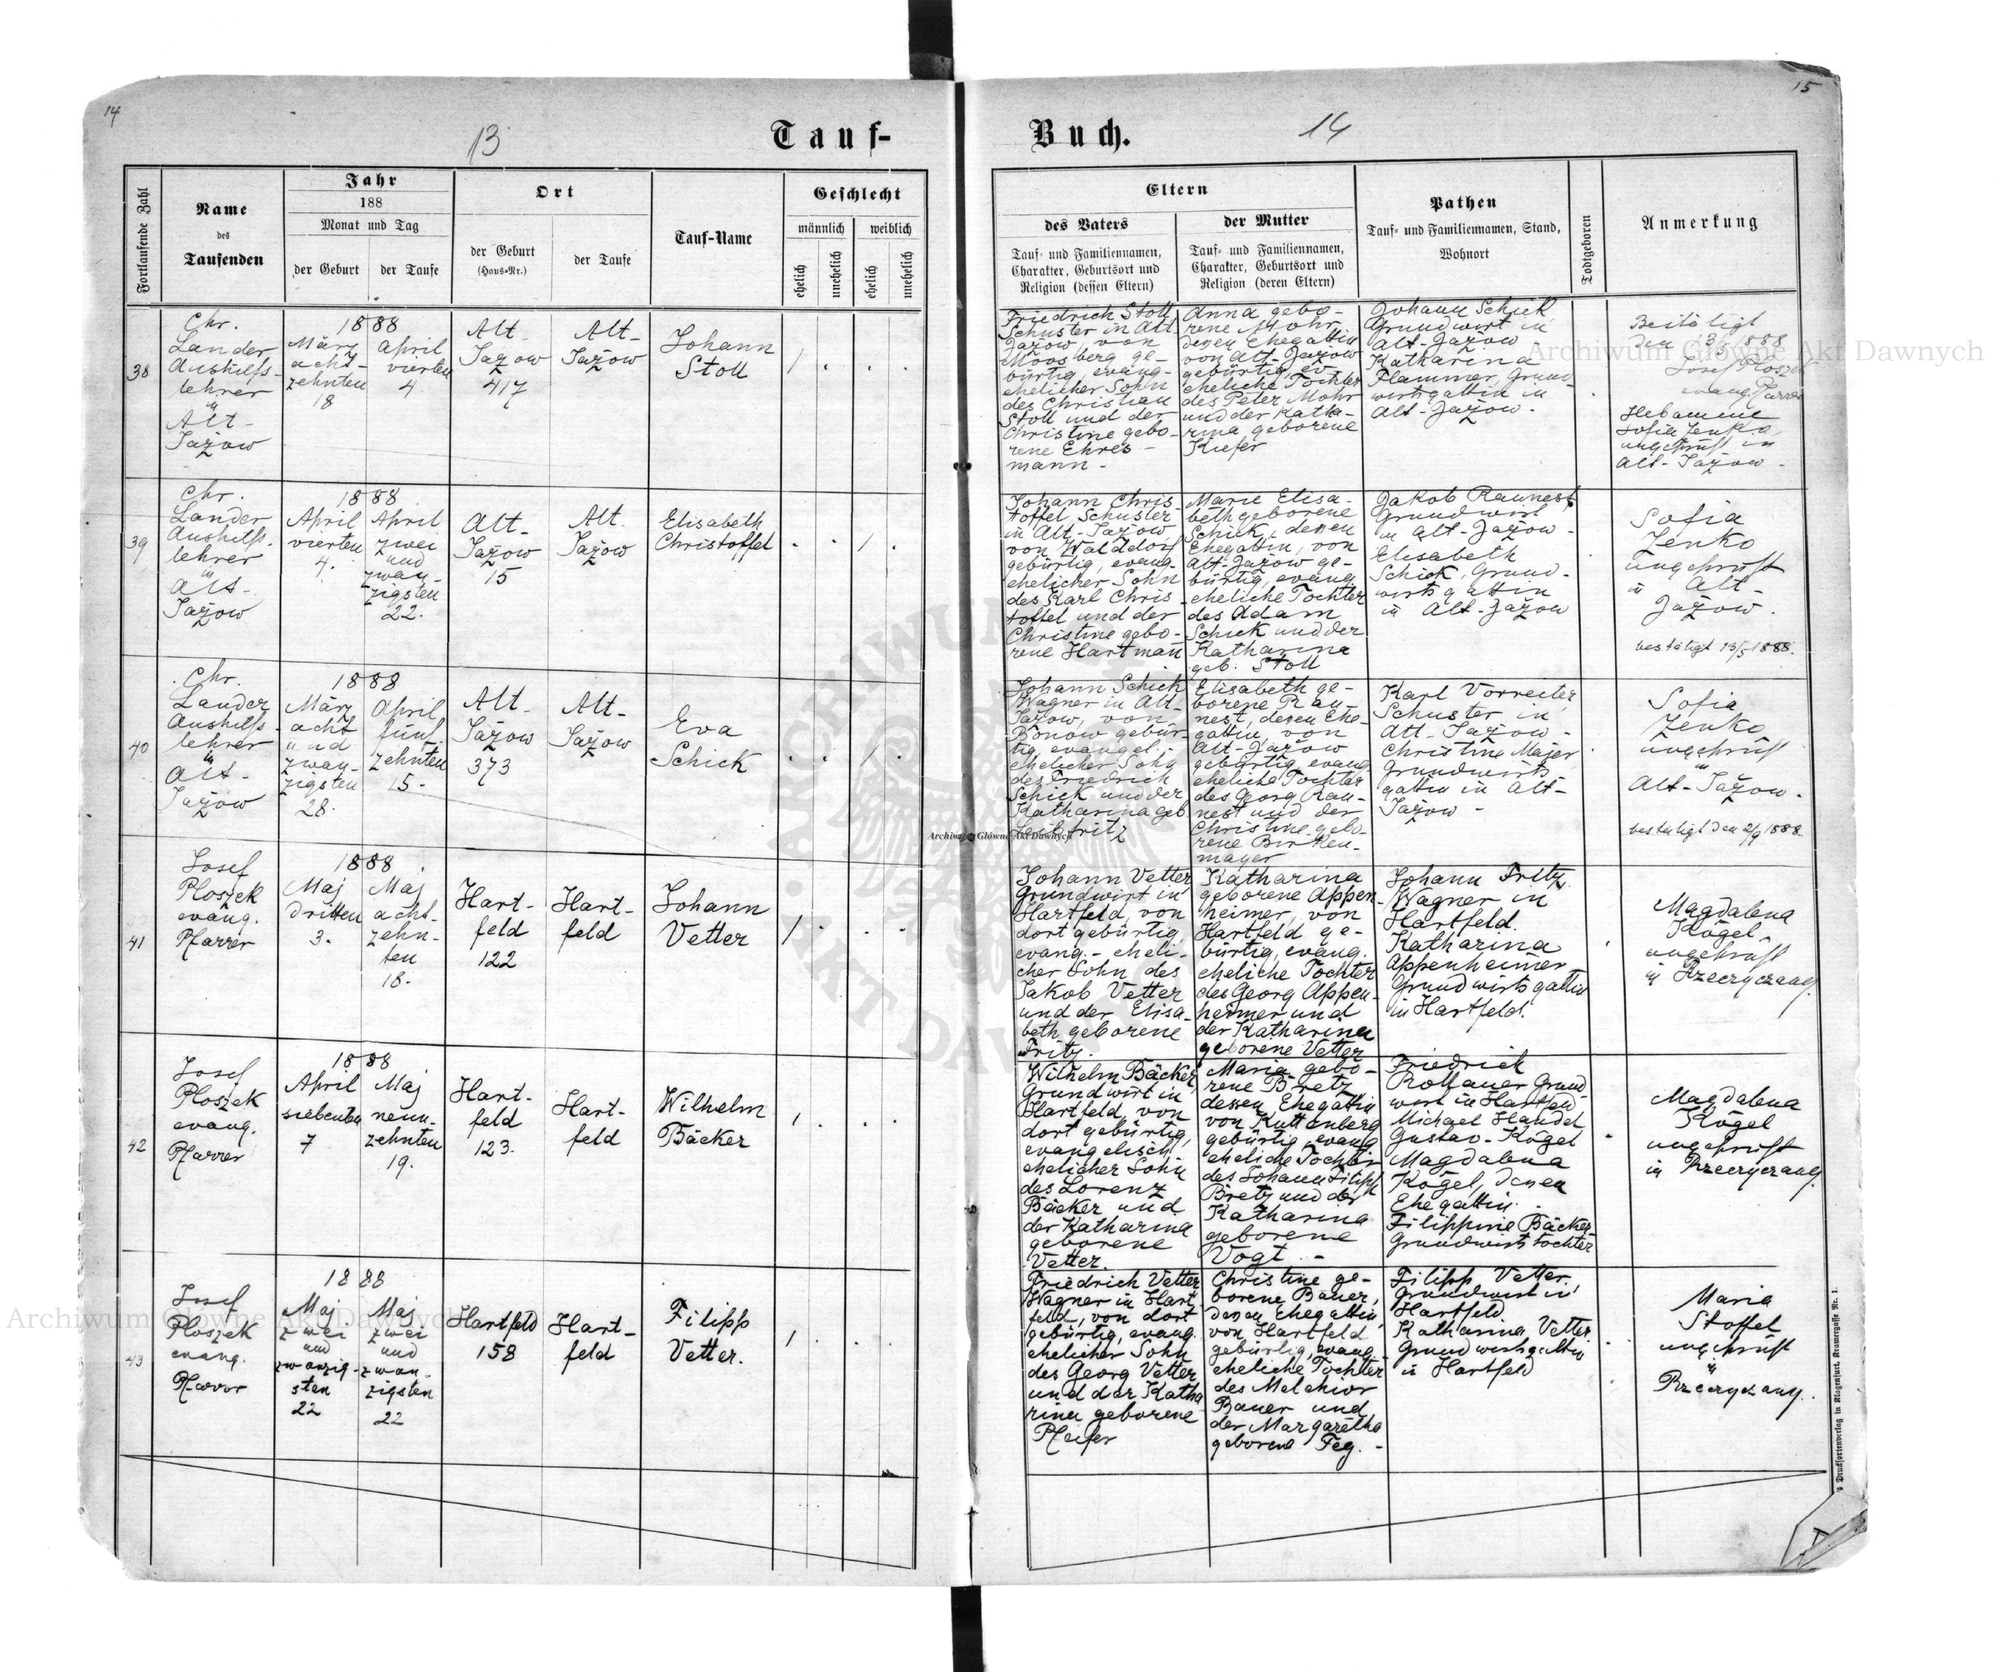 14
15
13
14
Tauf-
Buch.
Fortlaufende Zahl
Name
des
Taufenden
Jahr
188
Monat und Tag
der Geburt
der Taufe
Ort
der Geburt
(Haus-Nr.)
der Taufe
Tauf-Name
Geschlecht
männlich
weiblich
ehelich
unehelich
ehelich
unehelich
Eltern
des Vaters
Tauf- und Familiennamen,
Charakter, Geburtsort und
Religion (dessen Eltern)
der Mutter
Tauf- und Familiennamen,
Charakter, Geburtsort und
Religion (deren Eltern)
Pathen
Tauf- und Familiennamen, Stand,
Wohnort
Todtgeboren
Anmerkung
38
Chr.
Lander
Aushilfs-
lehrer
in
Alt-
Jażow
1888
März
acht-
zehnten
18
April
vierten
4.
Alt-
Jażow
417
Alt-
Jażow
Johann
Stoll
Friedrich Stoll
Schuster in Alt
Jażow, von
Mrosberg ge-
bürtig, evang-
ehelicher Sohn
des Christian
Stoll und der
Christine gebo-
rene Ehres-
mann-
Anna gebo-
rene Mohr
deren Ehegattin
von Alt-Jażow
gebürtig, ev.
eheliche Tochter
des Peter Mohr
und der Katha-
rina geborene
Kiefer
Johann Schick
Grundwirt in
Alt-Jażow
Katharina
Flammer, Grund-
wirtsgattin in
Alt-Jażow.
Bestätigt
den 13/5 1888
Josef Ploszek
evang. Pfarrer
Hebamme
Sofia Zenko,
ungeprüft in
Alt-Jażow.
39
Chr.
Lander
Aushilfs-
lehrer
in
Alt-
Jażow
1888
April
vierten
4.
April
zwei
und
zwan-
zigsten
22.
Alt-
Jażow
15
Alt.
Jażow
Elisabeth
Christoffel
Johann Chris
toffel Schuster
in Alt-Jażow,
von Walddorf
gebürtig, evang-
ehelicher Sohn
des Karl Chris-
toffel und der
Christine gebo-
rene Hartmañ
Marie Elisa-
beth geborene
Schick, dessen
Ehegattin, von
Alt-Jażow ge-
bürtig, evang
eheliche Tochter
des Adam
Schick und der
Katharina
geb. Stoll
Jakob Raunest
Grundwirt
in Alt-Jażow-
Elisabeth
Schick, Grund-
wirtsgattin
in Alt-Jażow
Sofia
Zenko
ungeprüft
in Alt-
Jażow.
bestätigt 13/5 1888.
40
Chr.
Lander
Aushilfs-
lehrer
in
Alt-
Jażow
1888
März
acht
und
zwan-
zigsten
28.
April
fünf
zehnten
15.
Alt-
Jażow
373
Alt-
Jażow
Eva
Schick
Johann Schick
Wagner in Alt-
Jażow, von
Bonow gebür-
tig, evangel.
ehelicher Sohn
des Friedrich
Schick und der
Katharina geb
Elisabeth ge-
borene Rau-
nest, deren Ehe-
gattin, von
Alt-Jażow
gebürtig, evang
eheliche Tochter
des Georg Rau-
nest und der
Christine gebo-
rene Birken-
mayer
Karl Vorreiter,
Schuster in
Alt-Jażow-
Christine Majer
Grundwirts
gattin in Alt-
Jażow-
Sofia
Zenko,
ungeprüft
in
Alt-Jażow.
bestätigt den 2/9 1888.
41
Josef
Ploszek
evang.
Pfarrer
1888
Maj
dritten
3.
Maj
acht-
zehn-
ten
18.
Hart-
feld
122
Hart-
feld
Johann
Vetter
Johann Vetter
Grundwirt in
Hartfeld, von
dort gebürtig,
evang.- eheli-
cher Sohn des
Jakob Vetter
und der Elisa-
beth geborene
Fritz.
Katharina
geborene Appen-
heimer, von
Hartfeld ge-
bürtig, evang.
eheliche Tochter
des Georg Appen-
heimer und
der Katharina
geborene Vetter
Johann Fritz,
Wagner in
Hartfeld.
Katharina
Appenheimer
Grundwirtsgattin
in Hartfeld.
Magdalena
Kögel-
ungeprüft
in Rzeczyczany.
42
Josef
Ploszek
evang.
Pfarrer
1888
April
siebenten
7
Maj
neun-
zehnten
19.
Hart-
feld
123.
Hart-
feld
Wilhelm
Bäcker
Wilhelm Bäcker,
Grundwirt in
Hartfeld, von
dort gebürtig,
evangelisch
ehelicher Sohn
des Lorenz
Bäcker und
der Katharina
geborene
Vetter.
Maria gebo-
rene Bretz
dessen Ehegattin
von Kuttenberg
gebürtig, evang
eheliche Tochter
des Johann Filipp
Bretz und der
Katharina
geborene
Vogt -
Friedrich
Grund-
wirt in Hartfeld
Michael Handel
Gustav-Kögel
Magdalena
Kögel, denen
Ehegattin.
Filippine Bäcker
Grundwirtstochter
Magdalena
Kögel
ungeprüft
in Rzeczyczany.
43
Josef
Ploszek
evang.
Pfarrer
1888
Maj
zwei
und
zwanzig-
sten
22
Maj
zwei
und
zwan-
zigsten
22
Hartfeld
158
Hart-
feld
Filipp
Vetter.
Friedrich Vetter
Wagner in Hart
feld, von dort
gebürtig, evang.
ehelicher Sohn
des Georg Vetter
und der Katha
rina geborene
Pfeifer
Christine ge-
borene Bauer,
deren Ehegattin,
von Hartfeld
gebürtig, evang.
eheliche Tochter
des Melchior
Bauer und
der Margaretha
geborene Feg.-
Filipp Vetter,
Grundwirt in
Hartfeld
Katharina Vetter
Grundwirtsgattin
in Hartfeld
Maria
Stoffel
ungeprüft
in
Rzeczyczany.
Druckfortenverlag in Klagenfurt, Kramergasse Nr. 1.
Archiwum Główne Akt Dawnych
Archiwum Główne Akt Dawnych
Archiwum Główne Akt Dawnych